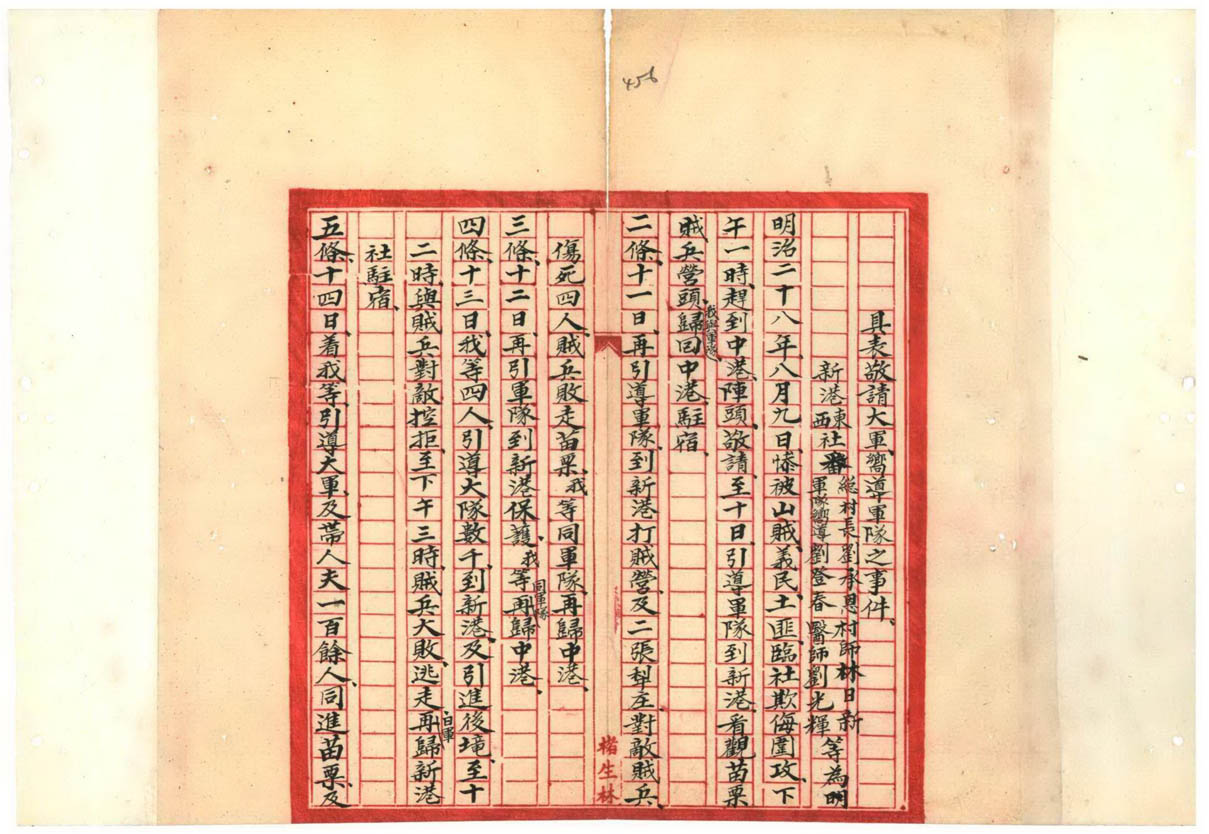 456
具表敬請大軍嚮導軍隊之事件、
新港東西社番總村長劉承恩村師林日新軍隊嚮導劉登春醫師劉光輝等為明
明治二十八年八月九日、慘被山賊義民土匪、臨社欺侮圍攻、下
午一時、趕到中港陣頭、敬請、至十日、引導軍隊到新港、看觀苗栗
賊兵營頭、我與軍隊歸回中港、駐宿、
二條、十一日、再引導軍隊、到新港打賊營、及二張犁庄對敵賊兵、
傷死四人、賊兵敗走苗栗、我等同軍隊再歸中港、
三條、十二日、再引軍隊到新港保護、我等同軍隊再歸中港、
四條、十三日、我等四人、引導大隊數千、到新港、及引進後境、至十
二時、與賊兵對敵控拒、至下午三時、賊兵大敗、逃走、日軍再歸新港
社駐宿、
五條、十四日、着我等、引導大軍、及帶人夫一百餘人、同進苗栗、及
楮生林